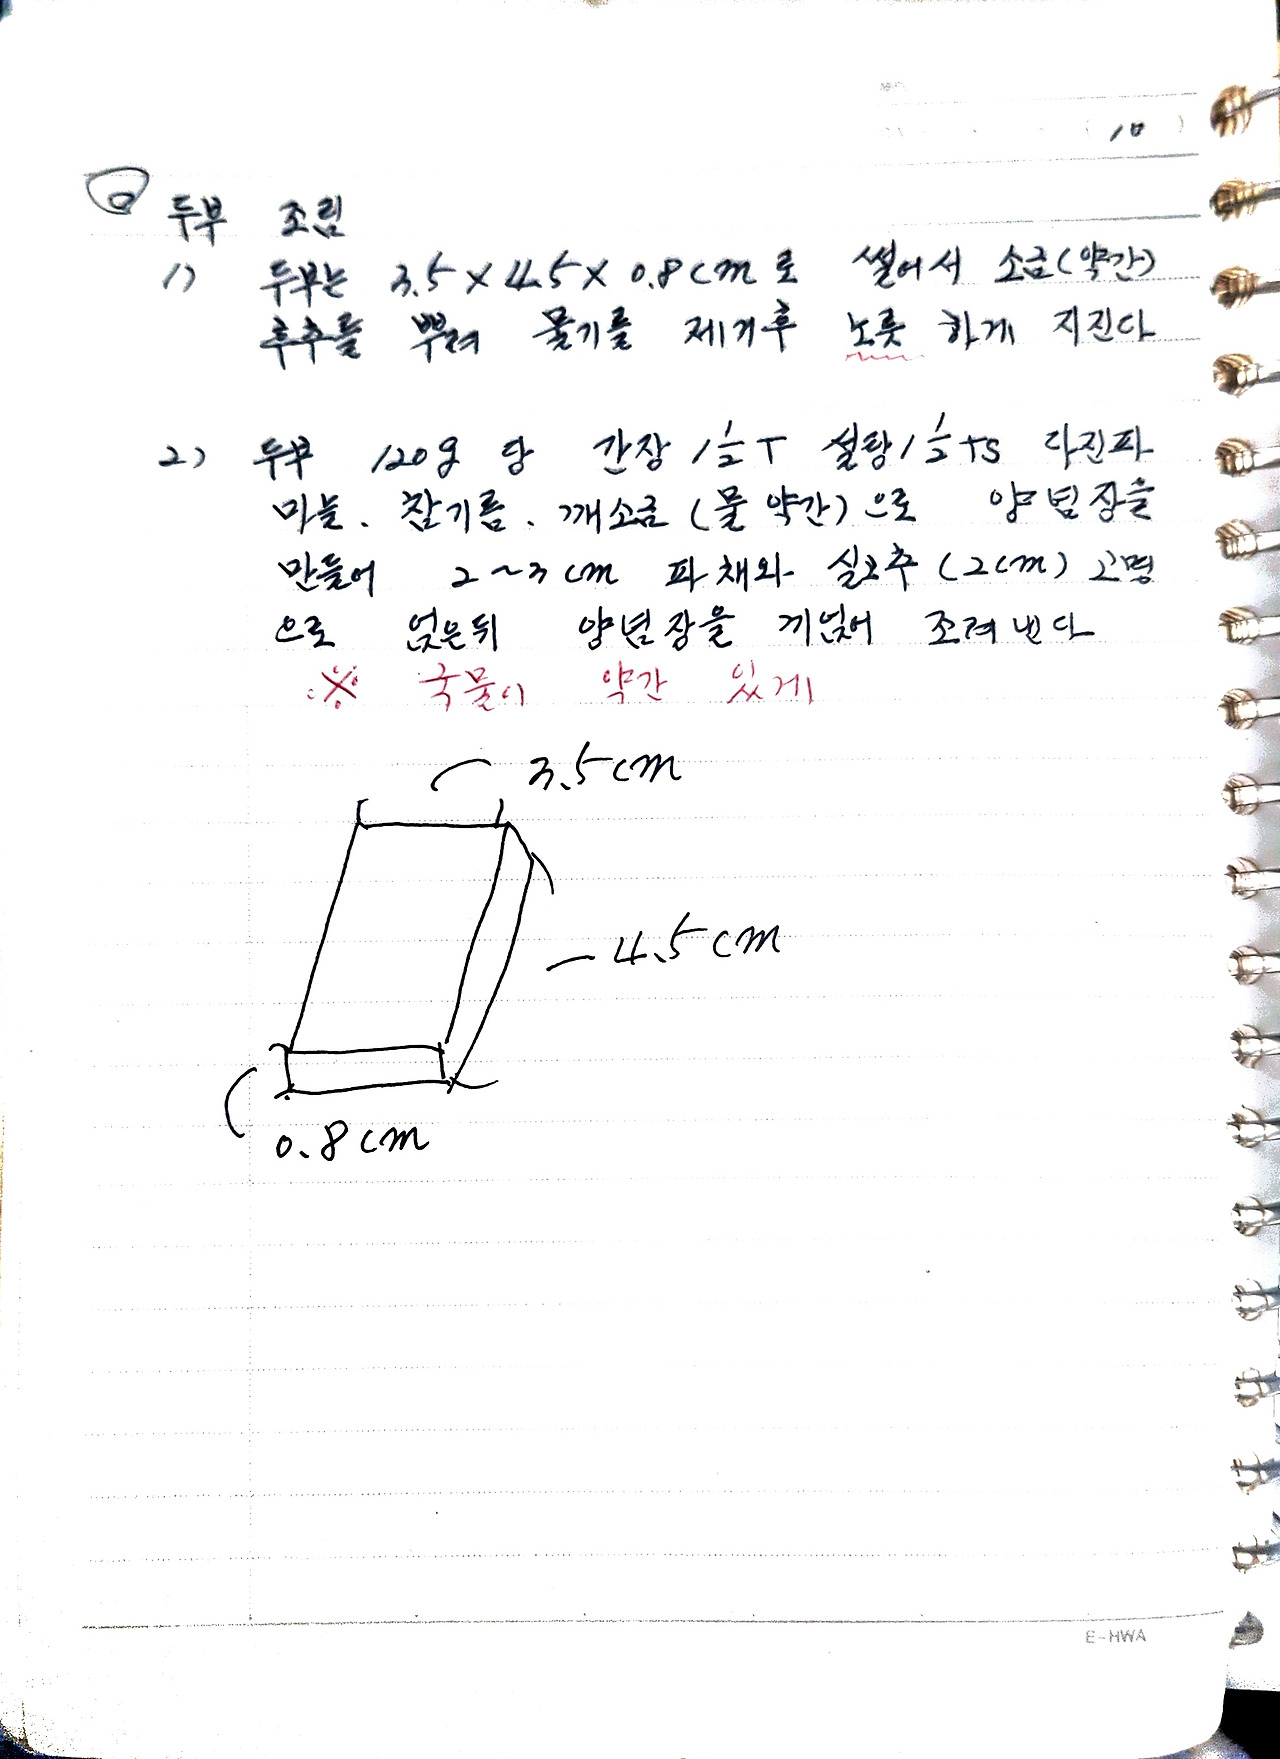 ( 10 )
ㅁ 두부 조림
1) 두부는 3.5 × 4.5 × 0.8cm로 썰어서 소금(약간)
후추를 뿌려 물기를 제거후 노릇 하게 지진다
2) 두부 120g 당 간장 1½T 설탕 1½TS 다진파
마늘. 참기름. 깨소금 (물 약간)으로 양념장을
만들어 2~3cm 파채와 실고추 (2cm) 고명
으로 얹은뒤 양념장을 끼얹어 조려낸다
※ 국물이 약간 있게
3.5cm
4.5cm
0.8cm
E-HWA